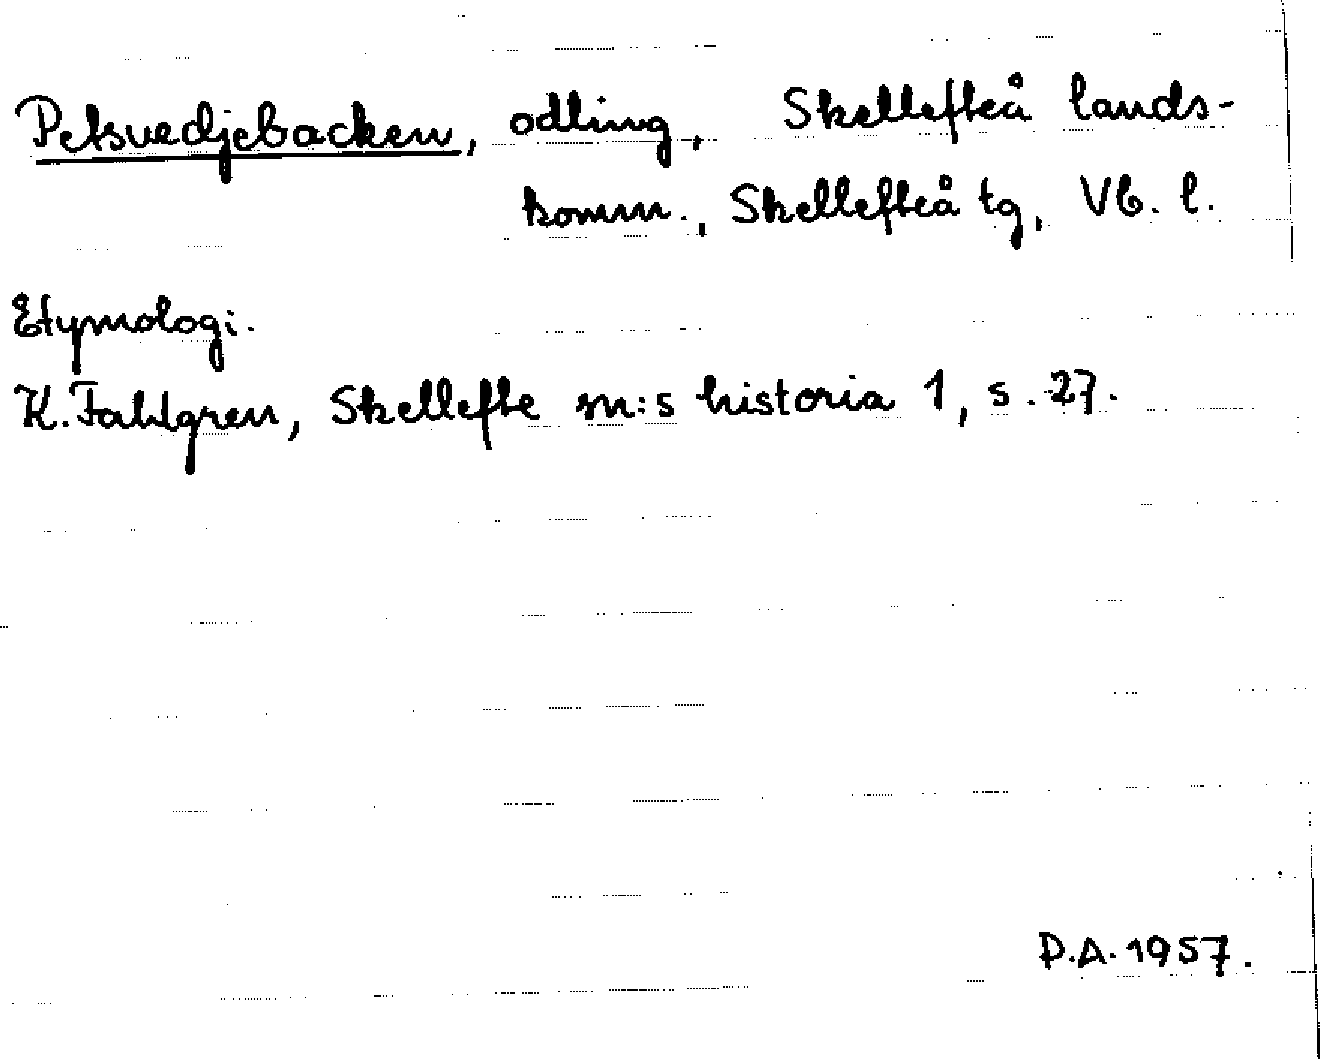 Petsvedjebacken, odling, Skellefteå lands-
komm., Skellefteå tg, Vb. l.
Etymologi.
K. Fahlgren, Skellefte sn:s historia 1, s. 27.
D.A. 1957.